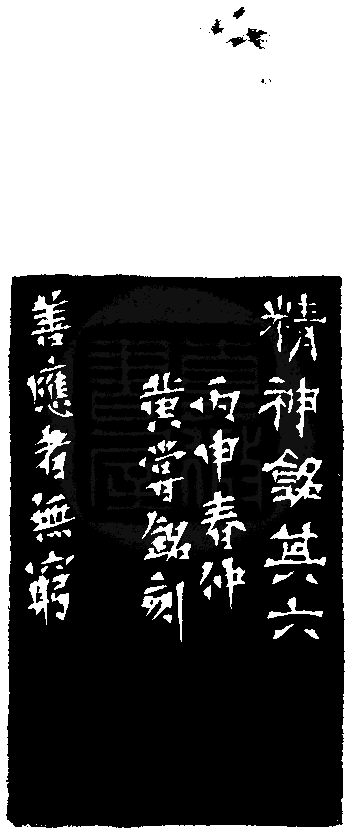 精神銘其六
丙申春仲
黄尝銘刻
善應者無窮